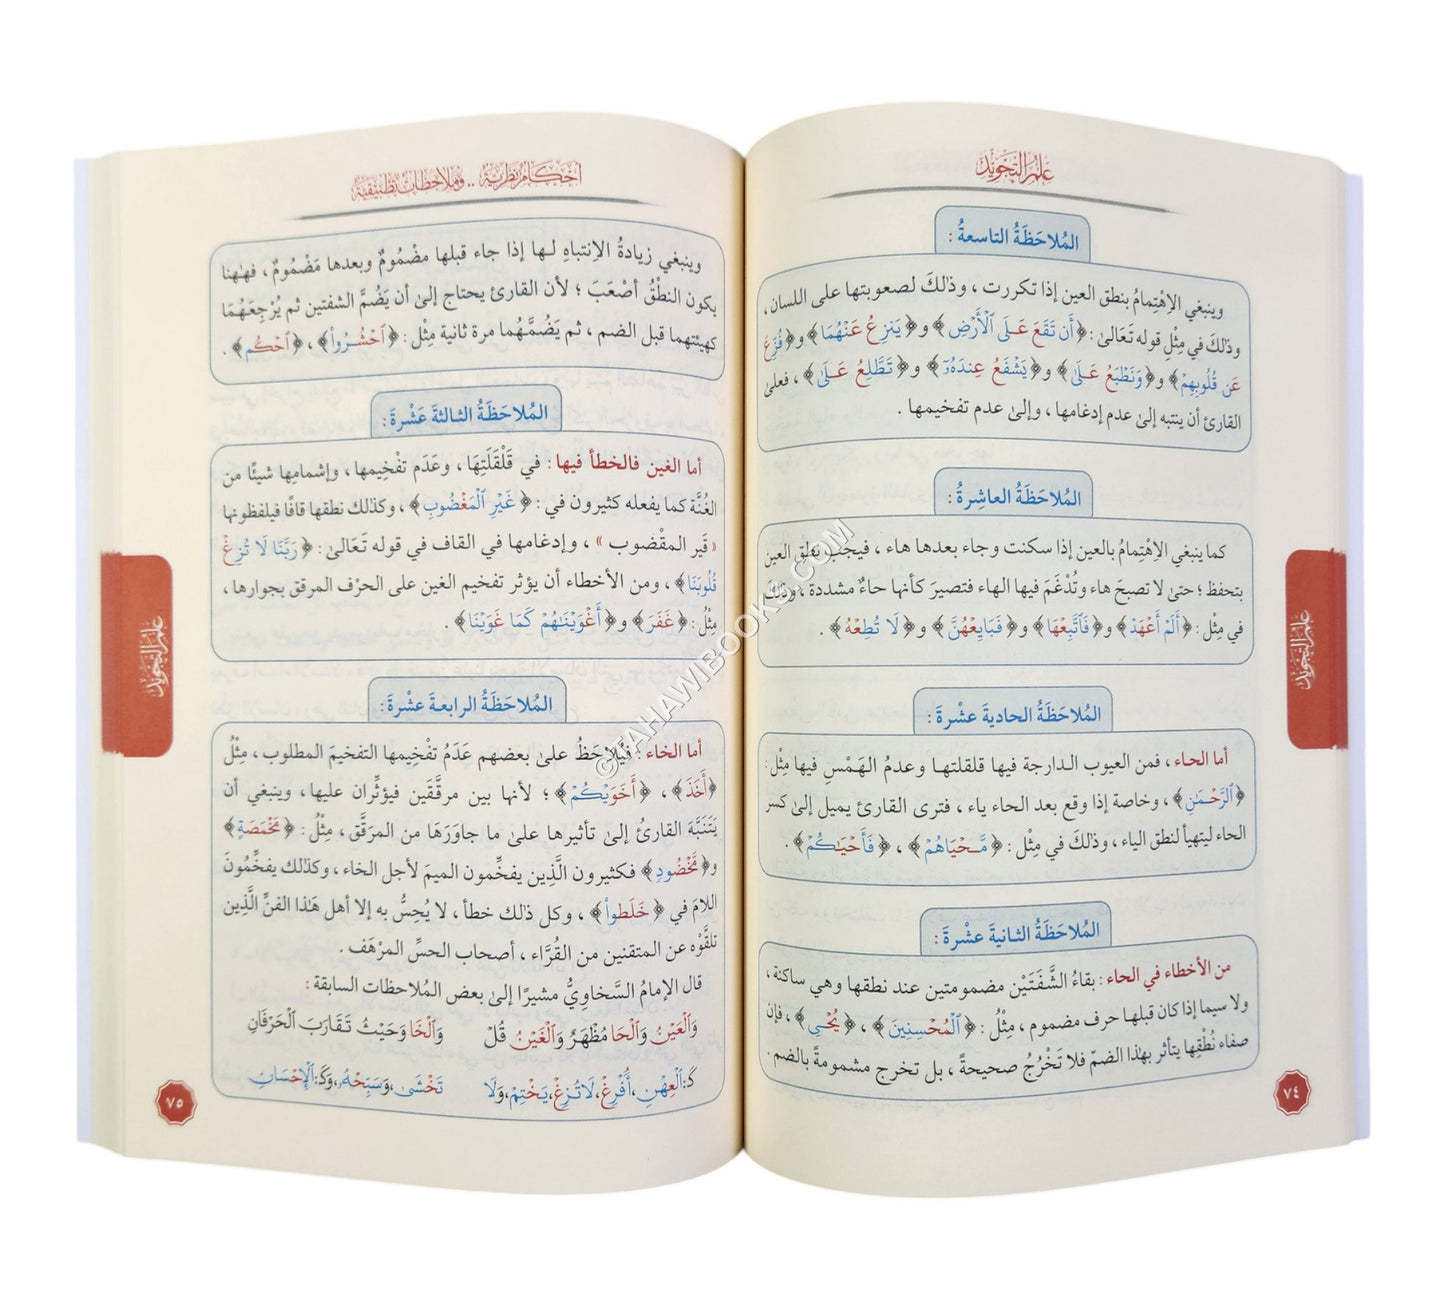 عِلْمُ التَّجْوِيْدِ
المُلاحَظَةُ التاسعةُ :
وينبغي الاِهْتِمامُ بنطق العين إذا تكررت ، وذٰلكَ لصعوبتها على اللسان ،
وذٰلكَ في مِثْلِ قوله تَعَالىٰ : ﴿أَن تَقَعَ عَلَى ٱلْأَرْضِ﴾ و﴿يَنزِعُ عَنْهُمَا﴾ و﴿فُزِّعَ
عَن قُلُوبِهِمْ﴾ و﴿وَنَطْبَعُ عَلَىٰ﴾ و﴿يَشْفَعُ عِندَهُۥٓ﴾ و﴿تَطَّلِعُ عَلَىٰ﴾ ، فعلىٰ
القارئ أن ينتبه إلىٰ عدم إدغامها ، وإلىٰ عدم تفخيمها .
المُلاحَظَةُ العاشرةُ :
كما ينبغي الاِهْتِمامُ بالعين إذا سكنت وجاء بعدها هاء ، فيجب نطق العين
بتحفظ ؛ حتىٰ لا تصبحَ هاء وتُدْغَمَ فيها الهاء فتصيرَ كأنها حاءٌ مشددة ، وذٰلكَ
في مِثْل : ﴿أَلَمْ أَعْهَدْ﴾ و﴿فَٱتَّبِعْهَا﴾ و﴿فَبَايِعْهُنَّ﴾ و﴿لَا تُطِعْهُ﴾ .
المُلاحَظَةُ الحادية عشْرةَ :
أما الحـاء ، فمن العيوب الـدارجة فيها قلقلتهـا وعدمُ الهَمْسِ فيها مِثْل :
﴿ٱلرَّحْمَٰنِ﴾ ، وخاصة إذا وقع بعد الحاء ياء ، فترى القارئ يميل إلىٰ كسر
الحاء ليتهيأ لنطق الياء ، وذٰلكَ في مِثْل : ﴿مَّحْيَاهُمْ﴾ ، ﴿فَأَحْيَٰكُمْ﴾ .
المُلاحَظَةُ الثـانيةَ عشْرةَ :
من الأخطاء في الحاء : بقاءُ الشَّفَتَيْن مضمومتين عند نطقها وهي ساكنة ،
ولا سيما إذا كان قبلها حرف مضموم ، مِثْلُ : ﴿ٱلْمُحْسِنِينَ﴾ ، ﴿يُحْىِ﴾ ، فإن
صفاء نُطْقِها يتأثر بهذا الضمّ فلا تَخْرُجُ صحيحةً ، بل تخرج مشمومةً بالضم .
٧٤
عِلْمُ التَّجْوِيْدِ
أَحْكَامٌ نَظَرِيَّةٌ .. وَمُلَاحَظَاتٌ تَطْبِيْقِيَّةٌ
وينبغي زيادةُ الاِنتباهِ لـها إذا جاء قبلها مضْمُومٌ وبعدها مَضْمُومٌ ، فهٰهنا
يكون النطْقُ أصْعَبَ ؛ لأن القارئ يحتاج إلىٰ أن يَضُمَّ الشفتين ثم يُرْجِعَهُمَا
كهيئتهما قبل الضم ، ثم يَضُمَّهُما مرة ثانية مِثْل : ﴿ٱحْشُرُواْ﴾ ، ﴿ٱحْكُم﴾ .
المُلاحَظَةُ الثـالثةَ عَشْرةَ :
أما الغين فالخطأ فيها : في قَلْقَلَتِهَا ، وعَدَم تفْخِيمها ، وإشمامِها شيئًا من
الغُنَّة كما يفعله كثيرون في : ﴿غَيْرِ ٱلْمَغْضُوبِ﴾ ، وكذٰلك نطقها قافًا فيلفظونها
« قَير المقْضوب » ، وإدغامها في القاف في قوله تَعَالىٰ : ﴿رَبَّنَا لَا تُزِغْ
قُلُوبَنَا﴾ ، ومن الأخطاء أن يؤثر تفخيم الغين على الحرْف المرقق بجوارها ،
مِثْلُ : ﴿غَفَرَ﴾ و﴿أَغْوَيْنَٰهُمْ كَمَا غَوَيْنَا﴾ .
المُلاحَظَةُ الرابعةَ عشْرةَ :
أما الخاء : فيُلاحَظُ علىٰ بعضهم عَدَمُ تفْخِيمها التفخيمَ المطلوب ، مِثْلُ
﴿أَخَذَ﴾ ، ﴿أَخَوَيْكُمْ﴾ ؛ لأنها بين مرقَّقَين فيؤثِّران عليها، وينبغي أن
يَتَنَبَّهَ القارئُ إلىٰ تأثيرها علىٰ ما جاوَرَها من المرَقَّق ، مِثْلُ : ﴿مَخْمَصَةٍ﴾
و﴿مَّخْضُودٍ﴾ فكثيرون الَّذِين يفخِّمون الميمَ لأجل الخاء ، وكذٰلك يفخِّمُونَ
اللامَ في ﴿خَلَطُواْ﴾ ، وكل ذٰلك خطأ، لا يُحِسُّ به إلا أهل هَٰذا الفنِّ الَّذِين
تلقَّوْه عن المتقنين من القُرَّاء ، أصحاب الحسِّ المرْهَف .
قال الإمامُ السَّخاوِيُّ مشيرًا إلىٰ بعض المُلاحظات السابقة :
وَالْعَيْنُ وَالْحَا مُظْهَرٌ وَالْغَيْنُ قُلْ وَالْخَا وَحَيْثُ تَقَارَبَ الْحَرْفَانِ
كَـ: الْعِهْنِ ، أَفْرِغْ ، لَا تُزِغْ ، يَخْتِمْ ، وَلَا تَخْشَىٰ ، وَسَبِّحْهُ ، وَكَـ: الْإِحْسَانِ
٧٥
عِلْمُ التَّجْوِيْدِ
©TAHAWIBOOKS.COM